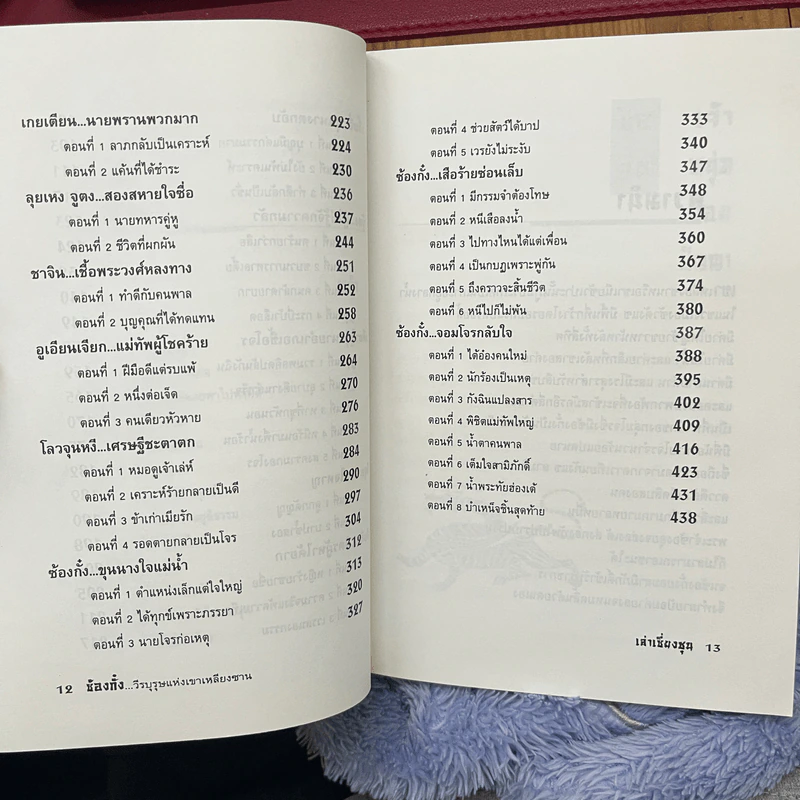 เกยเตียน...นายพรานพวกมาก 223
ตอนที่ 1 ลาภกลับเป็นเคราะห์ 224
ตอนที่ 2 แค้นที่ได้ชำระ 230
ลุยเหง จูตง...สองสหายใจซื่อ 236
ตอนที่ 1 นายทหารคู่หู 237
ตอนที่ 2 ชีวิตที่ผกผัน 244
ชาจิน...เชื้อพระวงศ์หลงทาง 251
ตอนที่ 1 ทำดีกับคนพาล 252
ตอนที่ 2 บุญคุณที่ได้ทดแทน 258
อูเอียนเจียก...แม่ทัพผู้โชคร้าย 263
ตอนที่ 1 ฝีมือดีแต่รบแพ้ 264
ตอนที่ 2 หนึ่งต่อเจ็ด 270
ตอนที่ 3 คนเดียวหัวหาย 276
โลวจุนหงี...เศรษฐีชะตาตก 283
ตอนที่ 1 หมอดูเจ้าเล่ห์ 284
ตอนที่ 2 เคราะห์ร้ายกลายเป็นดี 290
ตอนที่ 3 ข้าเก่าเมียรัก 297
ตอนที่ 4 รอดตายกลายเป็นโจร 304
ซ้องกั๋ง...ขุนนางใจแม่น้ำ 312
ตอนที่ 1 ตำแหน่งเล็กแต่ใจใหญ่ 313
ตอนที่ 2 ได้ทุกข์เพราะภรรยา 320
ตอนที่ 3 นายโจรก่อเหตุ 327
12 ซ้องกั๋ง...วีรบุรุษแห่งเขาเหลียงซาน
ตอนที่ 4 ช่วยสัตว์ได้บาป 333
ตอนที่ 5 เวรยังไม่ระงับ 340
ซ้องกั๋ง...เสือร้ายซ่อนเล็บ 347
ตอนที่ 1 มีกรรมจำต้องโทษ 348
ตอนที่ 2 หนีเสือลงน้ำ 354
ตอนที่ 3 ไปทางไหนได้แต่เพื่อน 360
ตอนที่ 4 เป็นกบฏเพราะพู่กัน 367
ตอนที่ 5 ถึงคราวจะสิ้นชีวิต 374
ตอนที่ 6 หนีไปก็ไม่พ้น 380
ซ้องกั๋ง...จอมโจรกลับใจ 387
ตอนที่ 1 ได้อ๋องคนใหม่ 388
ตอนที่ 2 นักร้องเป็นเหตุ 395
ตอนที่ 3 กังฉินแปลงสาร 402
ตอนที่ 4 พิชิตแม่ทัพใหญ่ 409
ตอนที่ 5 น้ำตาคนพาล 416
ตอนที่ 6 เต็มใจสามิภักดิ์ 423
ตอนที่ 7 น้ำพระทัยฮ่องเต้ 431
ตอนที่ 8 บำเหน็จชิ้นสุดท้าย 438
เล่าเชี่ยงชุน 13